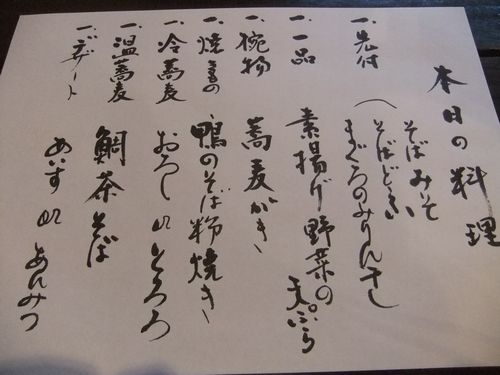 本日の料理
一、先付
そばみそ
そばどうふ
まぐろのみりん干し
一、一品
素揚げ野菜の天ぷら
一、椀物
蕎麦がき
一、焼もの
鴨のそば粉焼き
一、冷蕎麦
おろし or とろろ
一、温蕎麦
鯛茶そば
一、デザート
あいす or あんみつ